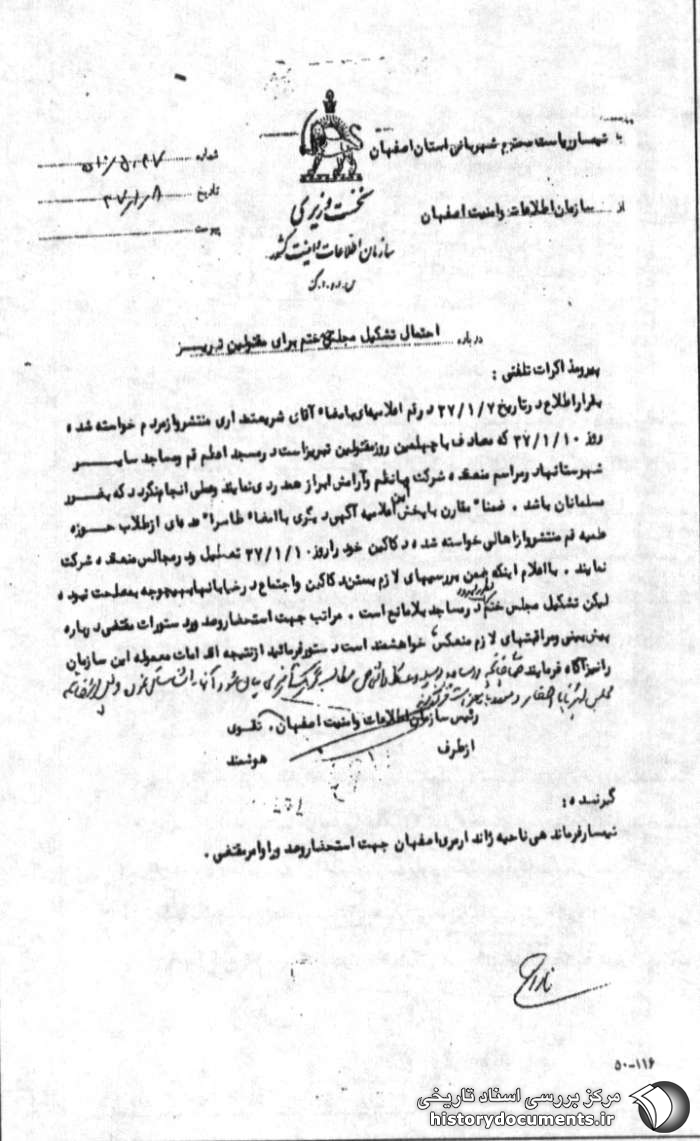 به تیمسار ریاست محترم شهربانی استان اصفهان
از سازمان اطلاعات و امنیت اصفهان
نخست وزیری
سازمان اطلاعات و امنیت کشور
س.ا.و.ا.ک
شماره
تاریخ ۳۷/۱/۸
پیوست
درباره احتمال تشکیل مجلس ختم برای مقتولین تبریز
پیرو مذاکرات تلفنی :
بقرار اطلاع در تاریخ ۳۷/۱/۷ در قم اعلامیه‌ای بامضاء آقای شریعتمداری منتشر و از مردم خواسته شده
روز ۳۷/۱/۱۰ که مصادف با چهلمین روز مقتولین تبریز است در مسجد اعظم قم و مساجد سایر
شهرستانها در مراسم منعقده شرکت و با نظم و آرامش ابراز همدردی نمایند و عملی انجام نگردد که بضرر
مسلمانان باشد . ضمناً مقارن با پخش این اعلامیه آگهی دیگری با امضاء عده‌ای از طلاب حوزه
علمیه قم منتشر و از اهالی خواسته شده دکاکین خود را روز ۳۷/۱/۱۰ تعطیل و در مجالس منعقده شرکت
نمایند . با اعلام اینکه ضمن بررسیهای لازم بستن دکاکین و اجتماع در خیابانها بهیچوجه بمصلحت نبوده
لیکن تشکیل مجلس ختم در مساجد بلامانع است . مراتب جهت استحضار و صدور دستورات مقتضی درباره
پیش بینی و مراقبتهای لازم منعکس خواهشمند است دستور فرمائید از نتیجه اقدامات معموله این سازمان
را نیز آگاه فرمایند
رئیس سازمان اطلاعات و امنیت اصفهان . تقوی
از طرف هوشمند
گیرنده :
تیمسار فرماندهی ناحیه ژاندارمری اصفهان جهت استحضار و صدور اوامر مقتضی .
۵۰-۱۱۶
مرکز بررسی اسناد تاریخی
historydocuments.ir